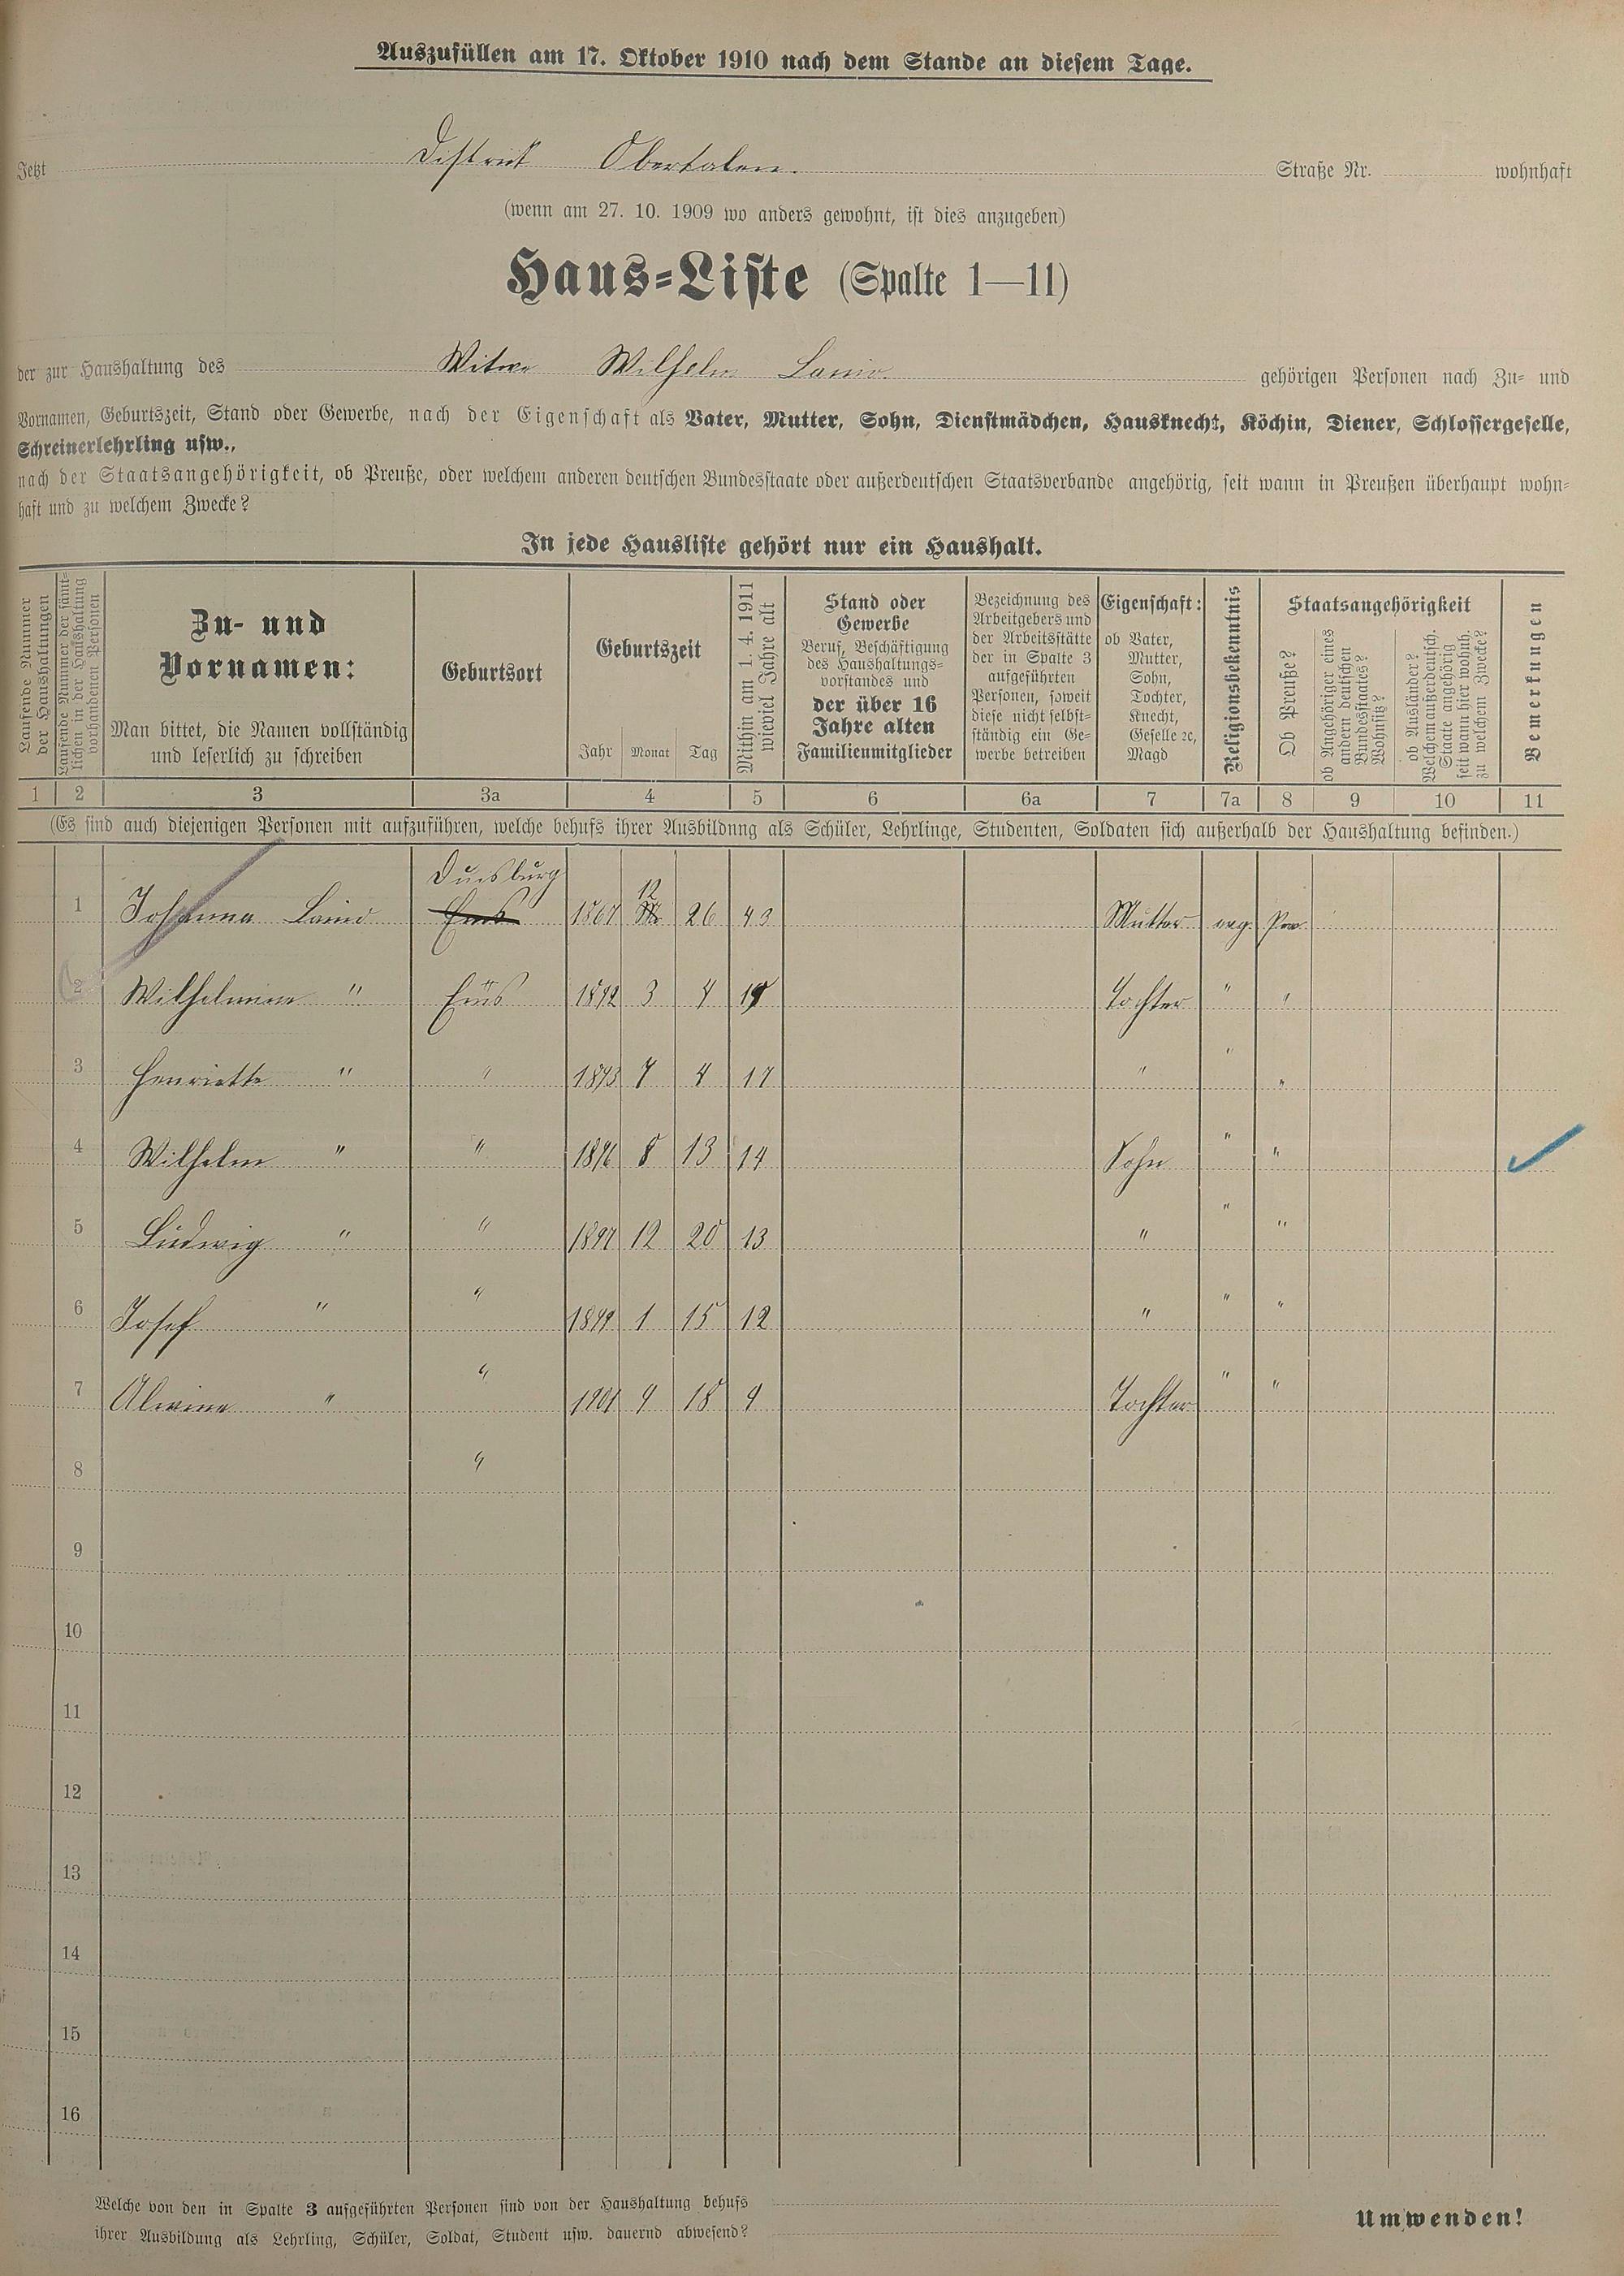 Auszufüllen am 17. Oktober 1910 nach dem Stande an diesem Tage.
Jetzt District Obertalen. Straße Nr. wohnhaft
(wenn am 27. 10. 1909 wo anders gewohnt, ist dies anzugeben)
Haus-Liste (Spalte 1—11)
der zur Haushaltung des Witwe Wilhelm gehörigen Personen nach Zu- und
Vornamen, Geburtszeit, Stand oder Gewerbe, nach der Eigenschaft als Vater, Mutter, Sohn, Dienstmädchen, Hausknecht, Köchin, Diener, Schlossergeselle,
Schreinerlehrling usw.,
nach der Staatsangehörigkeit, ob Preuße, oder welchem anderen deutschen Bundesstaate oder außerdeutschen Staatsverbande angehörig, seit wann in Preußen überhaupt wohn-
haft und zu welchem Zwecke?
In jede Hausliste gehört nur ein Haushalt.
Laufende Nummer
der Haushaltungen
Laufende Nummer der sämt-
lichen in der Haushaltung
vorhandenen Personen
Zu- und
Vornamen:
Man bittet, die Namen vollständig
und leserlich zu schreiben
Geburtsort
Geburtszeit
Jahr Monat Tag
Mithin am 1. 4. 1911
wieviel Jahre alt
Stand oder
Gewerbe
Beruf, Beschäftigung
des Haushaltungs-
vorstandes und
der über 16
Jahre alten
Familienmitglieder
Bezeichnung des
Arbeitgebers und
der Arbeitsstätte
der in Spalte 3
aufgeführten
Personen, soweit
diese nicht selbst-
ständig ein Ge-
werbe betreiben
Eigenschaft:
ob Vater,
Mutter,
Sohn,
Tochter,
Knecht,
Geselle ꝛc,
Magd
Religionsbekenntnis
Staatsangehörigkeit
Ob Preuße?
ob Angehöriger eines
andern deutschen
Bundesstaates?
Wohnsitz?
ob Ausländer?
Welchem außerdeutsch.
Staate angehörig
seit wann hier wohnh.
zu welchem Zwecke?
Bemerkungen
1 2 3 3a 4 5 6 6a 7 7a 8 9 10 11
(Es sind auch diejenigen Personen mit aufzuführen, welche behufs ihrer Ausbildung als Schüler, Lehrlinge, Studenten, Soldaten sich außerhalb der Haushaltung befinden.)
Duisburg
12
1 Johanna Ems 1867 26 43 Mutter evg. Pr
2 Wilhelmine " Ems 1892 3 4 Tochter " "
3 Henriette " " 1893 7 4 17 " " "
4 Wilhelm " " 1896 8 13 14 Sohn " "
5 Ludwig " " 1897 12 20 13 " " "
6 Josef " " 1899 1 15 12 " " "
7 Alwine " " 1901 9 18 9 Tochter " "
8 "
9
10
11
12
13
14
15
16
Welche von den in Spalte 3 aufgeführten Personen sind von der Haushaltung behufs
ihrer Ausbildung als Lehrling, Schüler, Soldat, Student usw. dauernd abwesend?
Umwenden!